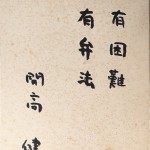 有困難
有弁法
開高 健